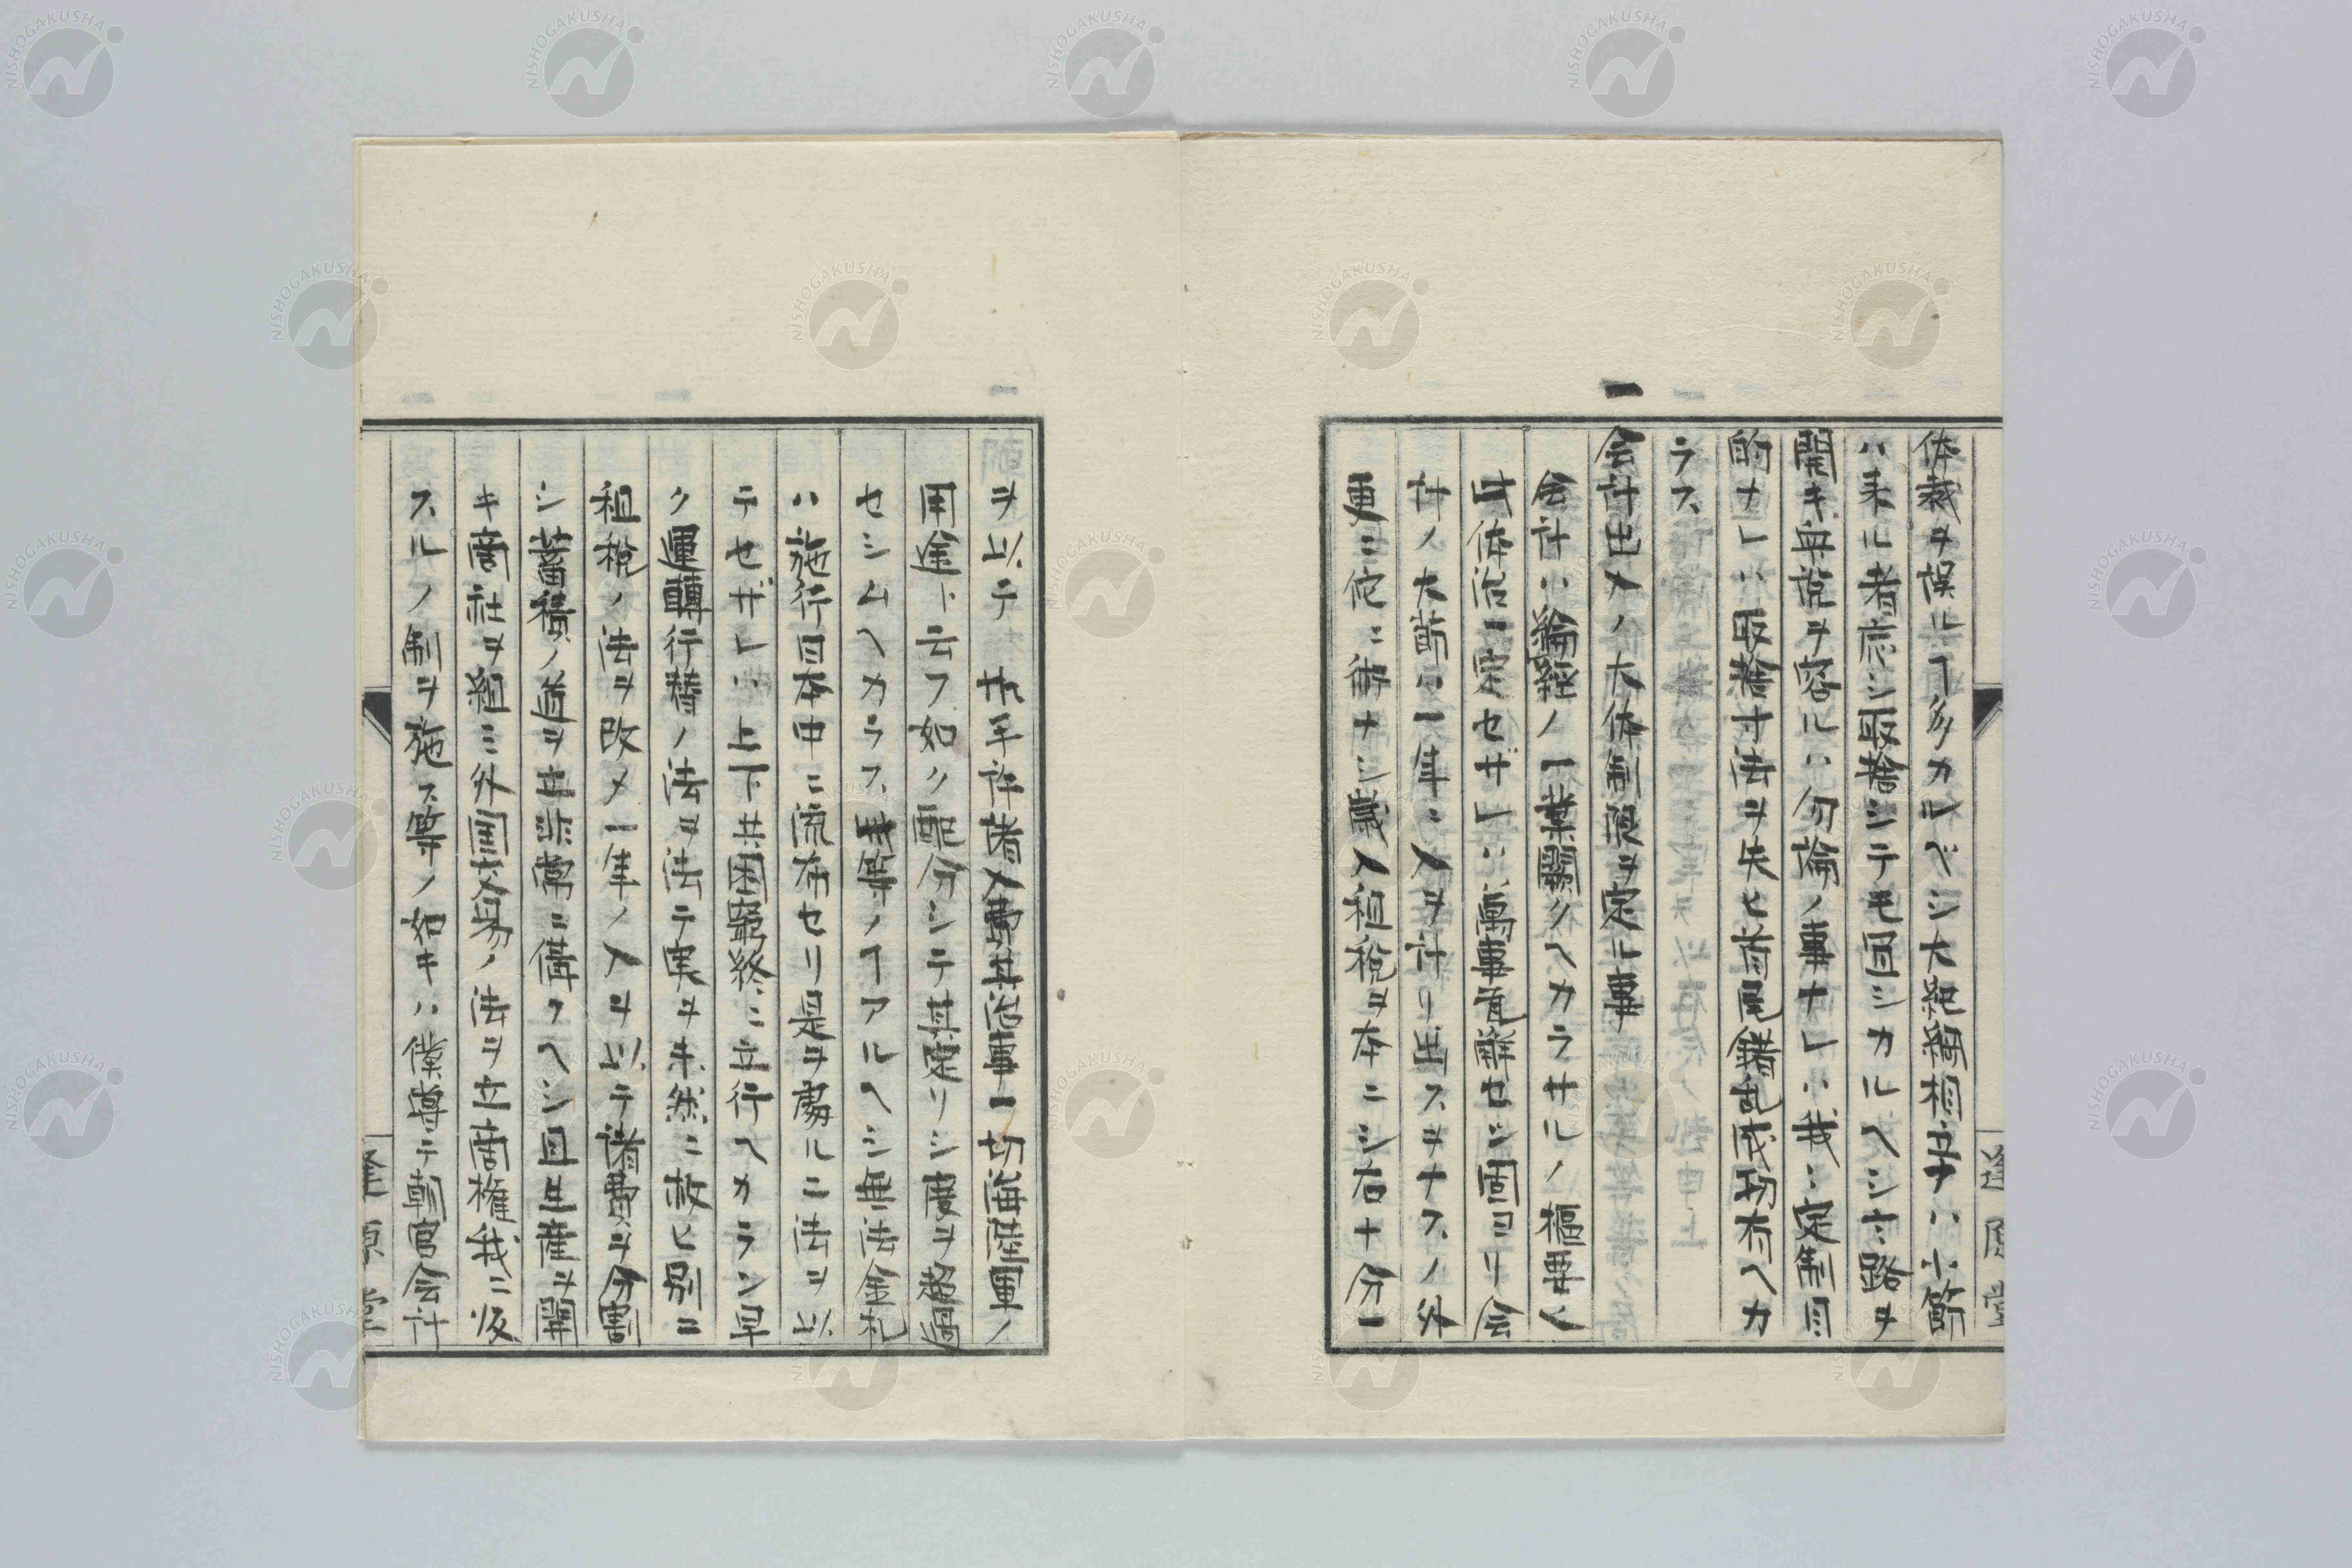 体裁ヲ誤ルヿ多カルベシ大紀綱相立チハ小節
ハ来ル者応シ取捨シテモ冝シカルヘシ言路ヲ
開キ毎説ヲ容ルハ勿論ノ事ナレハ我ニ定制目
的ナレハ取捨寸法ヲ失ヒ首尾錯乱成功有ヘカ
ラス
一会計出入ノ大体制限ヲ定ル事
会計ハ綸経ノ一業闕クヘカラサルノ樞要ニ
シ体治一定セザレハ萬事瓦解セシ固ヨリ会
計ノ大節ハ一年ニ入ヲ計リ出スヲナスノ外
更ニ佗ニ術ナシ歳入租税ヲ本ニシ右十分一
ヲ以テ 共半許諸入費其治事一切海陸軍ノ
用途ト云フ如ク配分シテ其定リシ度ヲ超過
セシムヘカラス此等ノヿアルヘシ無法金札
ハ施行日本中ニ流布セリ是ヲ處ルニ法ヲ以
テセザレハ上下共困窮終ニ立行ヘカラン早
ク運轉行替ノ法ヲ法テ実ヲ未然ニ救ヒ別ニ
租税ノ法ヲ改メ一年ノ入ヲ以テ諸費ヲ分割
シ蓄積ノ道ヲ立非常ニ備フヘシ且生産ヲ開
キ商社ヲ組ミ外国交易ノ法ヲ立商権我ニ收
スルノ制ヲ施ス等ノ如キハ僕尊テ朝官会計
逢原堂
逢原堂
NISHOGAKUSHA